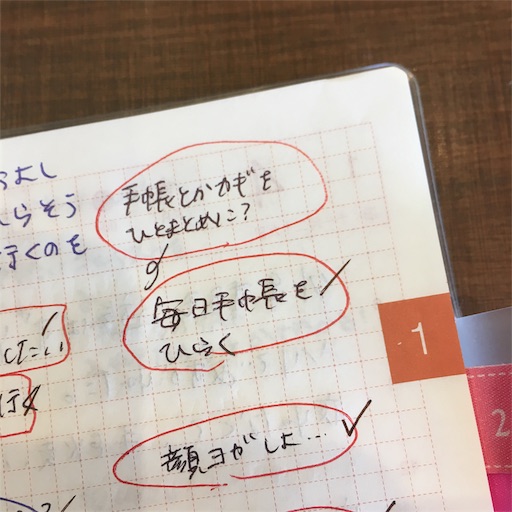 よし
らそう
行くのを
手帳とかカギを
ひとまとめに?
毎日手帳を
ひらく
たい
行く
顔ヨガしよ…
1
2